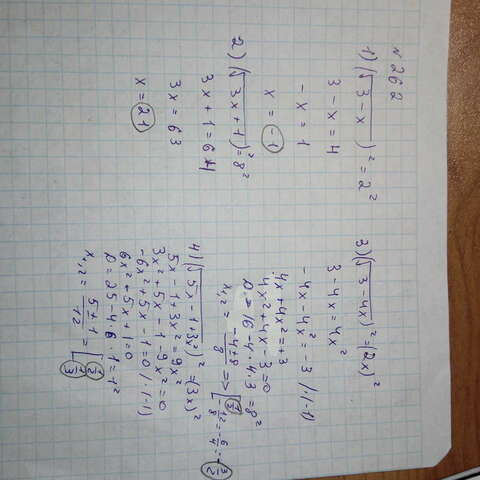 №262
1) (√3-x)² = 2²
3-x=4
-x=1
x=-1
2) (√3x+1)²=8²
3x+1=64
3x=63
x=21
3) (√3-4x)²=(2x)²
3-4x=4x²
-4x-4x²=-3 /(-1)
4x+4x²=+3
4x²+4x-3=0
D=16-4·4·3=8²
4) (√5x-1+3x²)²=(3x)²
5x-1+3x²=9x²
3x²+5x-1-9x²=0
-6x²+5x-1=0 /(-1)
6x²+5x+1=0
D=25-4·6·1=1²